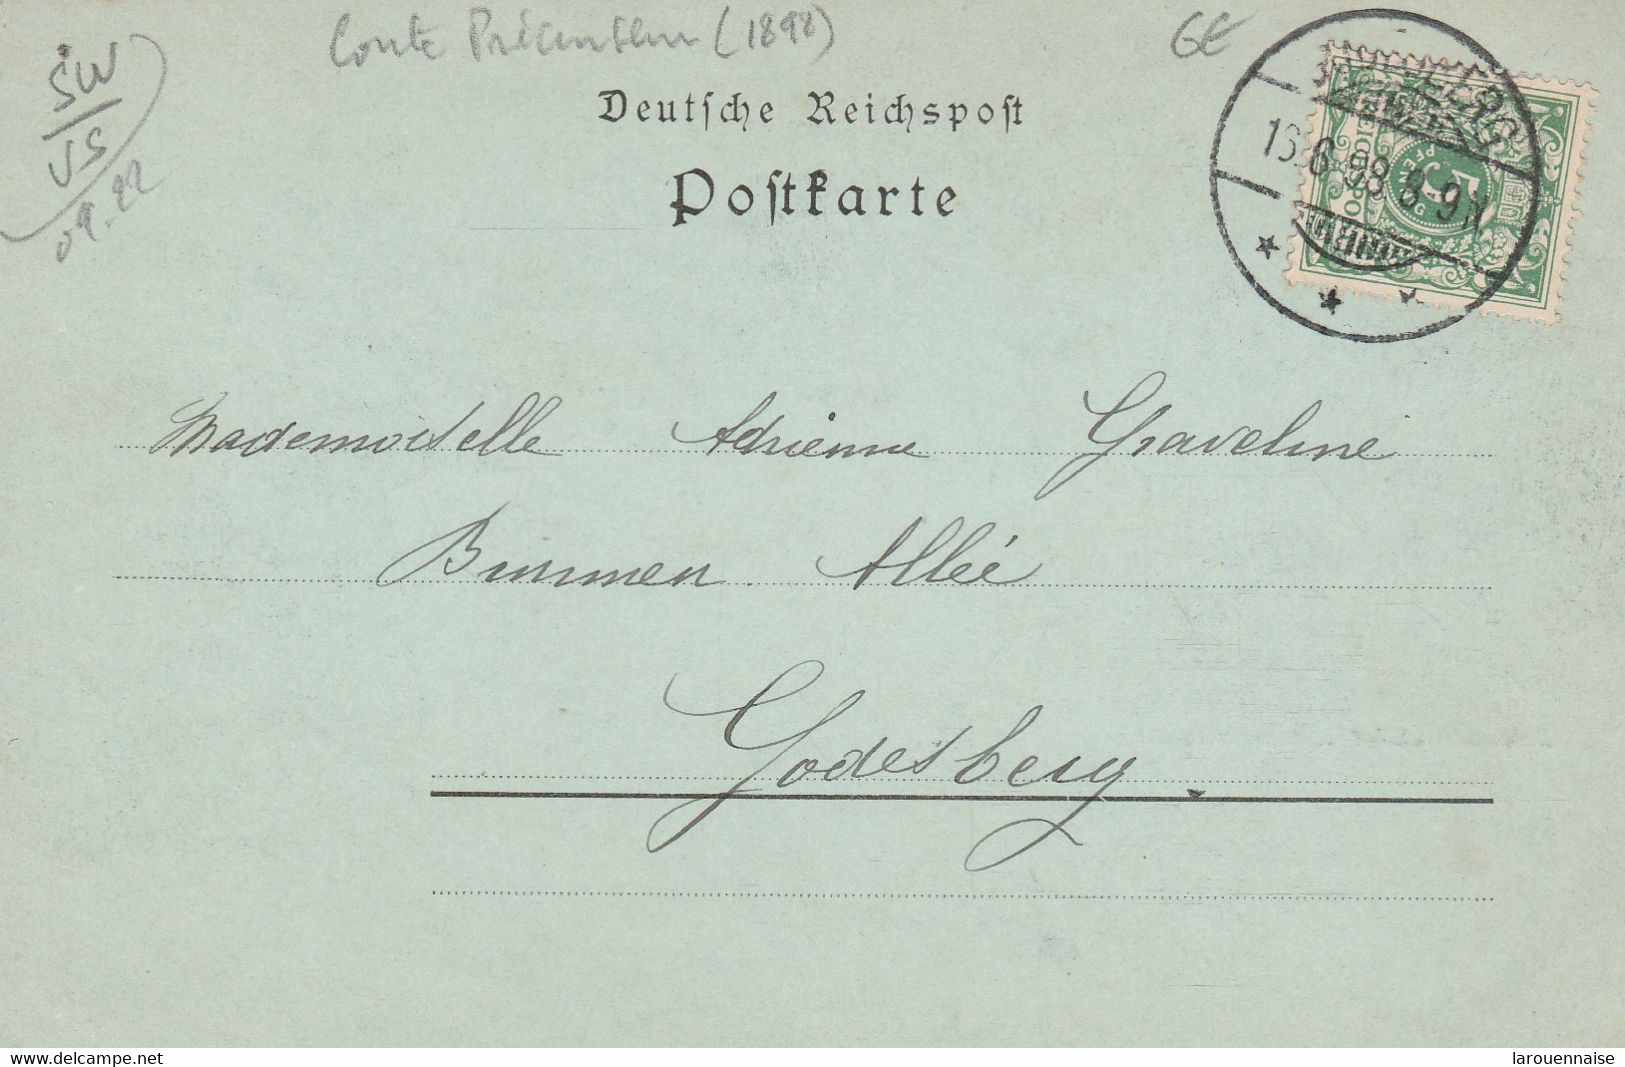 Carte Précurseur (1898)
GE
SW
VS
09.22
Deutsche Reichspost
Postkarte
5
13.6.98 8-9N
Mademoiselle Adrienne Graveline
Brunnen Allée
Godesberg.
delcampe.net
larouennaise